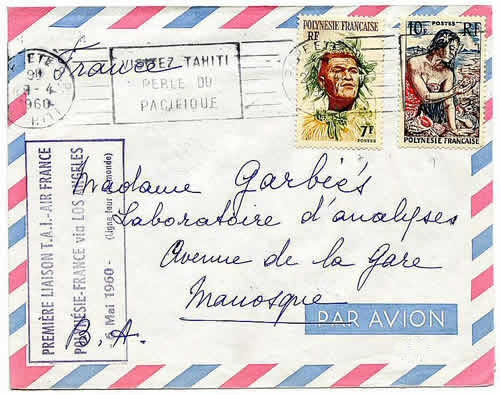 PAPEETE
9H
9-4
1960
TAHITI
France
VISITEZ TAHITI
PERLE DU
PACIFIQUE
PAPEETE
POLYNESIE FRANÇAISE
RF
7F
POSTES
POSTES
10F RF
POLYNESIE FRANÇAISE
PREMIÈRE LIAISON T.A.I.-AIR FRANCE
POLYNÉSIE-FRANCE via LOS ANGELES
- 5 Mai 1960 - (Ligne tour du monde)
Madame Garbiés
Laboratoire d'analyses
Avenue de la Gare
Manosque
B. A.
PAR AVION